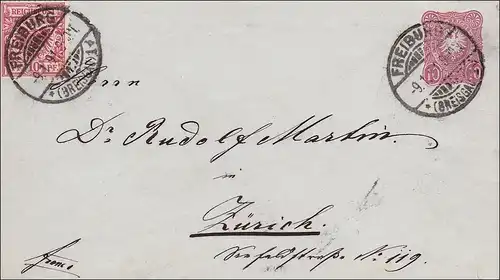 REICHSPOST
FREIBURG
(BREISGAU)
FREIBURG
(BREISGAU)
10
Herrn
Dr. Rudolf Martin.
in
Zürich.
Seefeldstraße No. 119.
franco